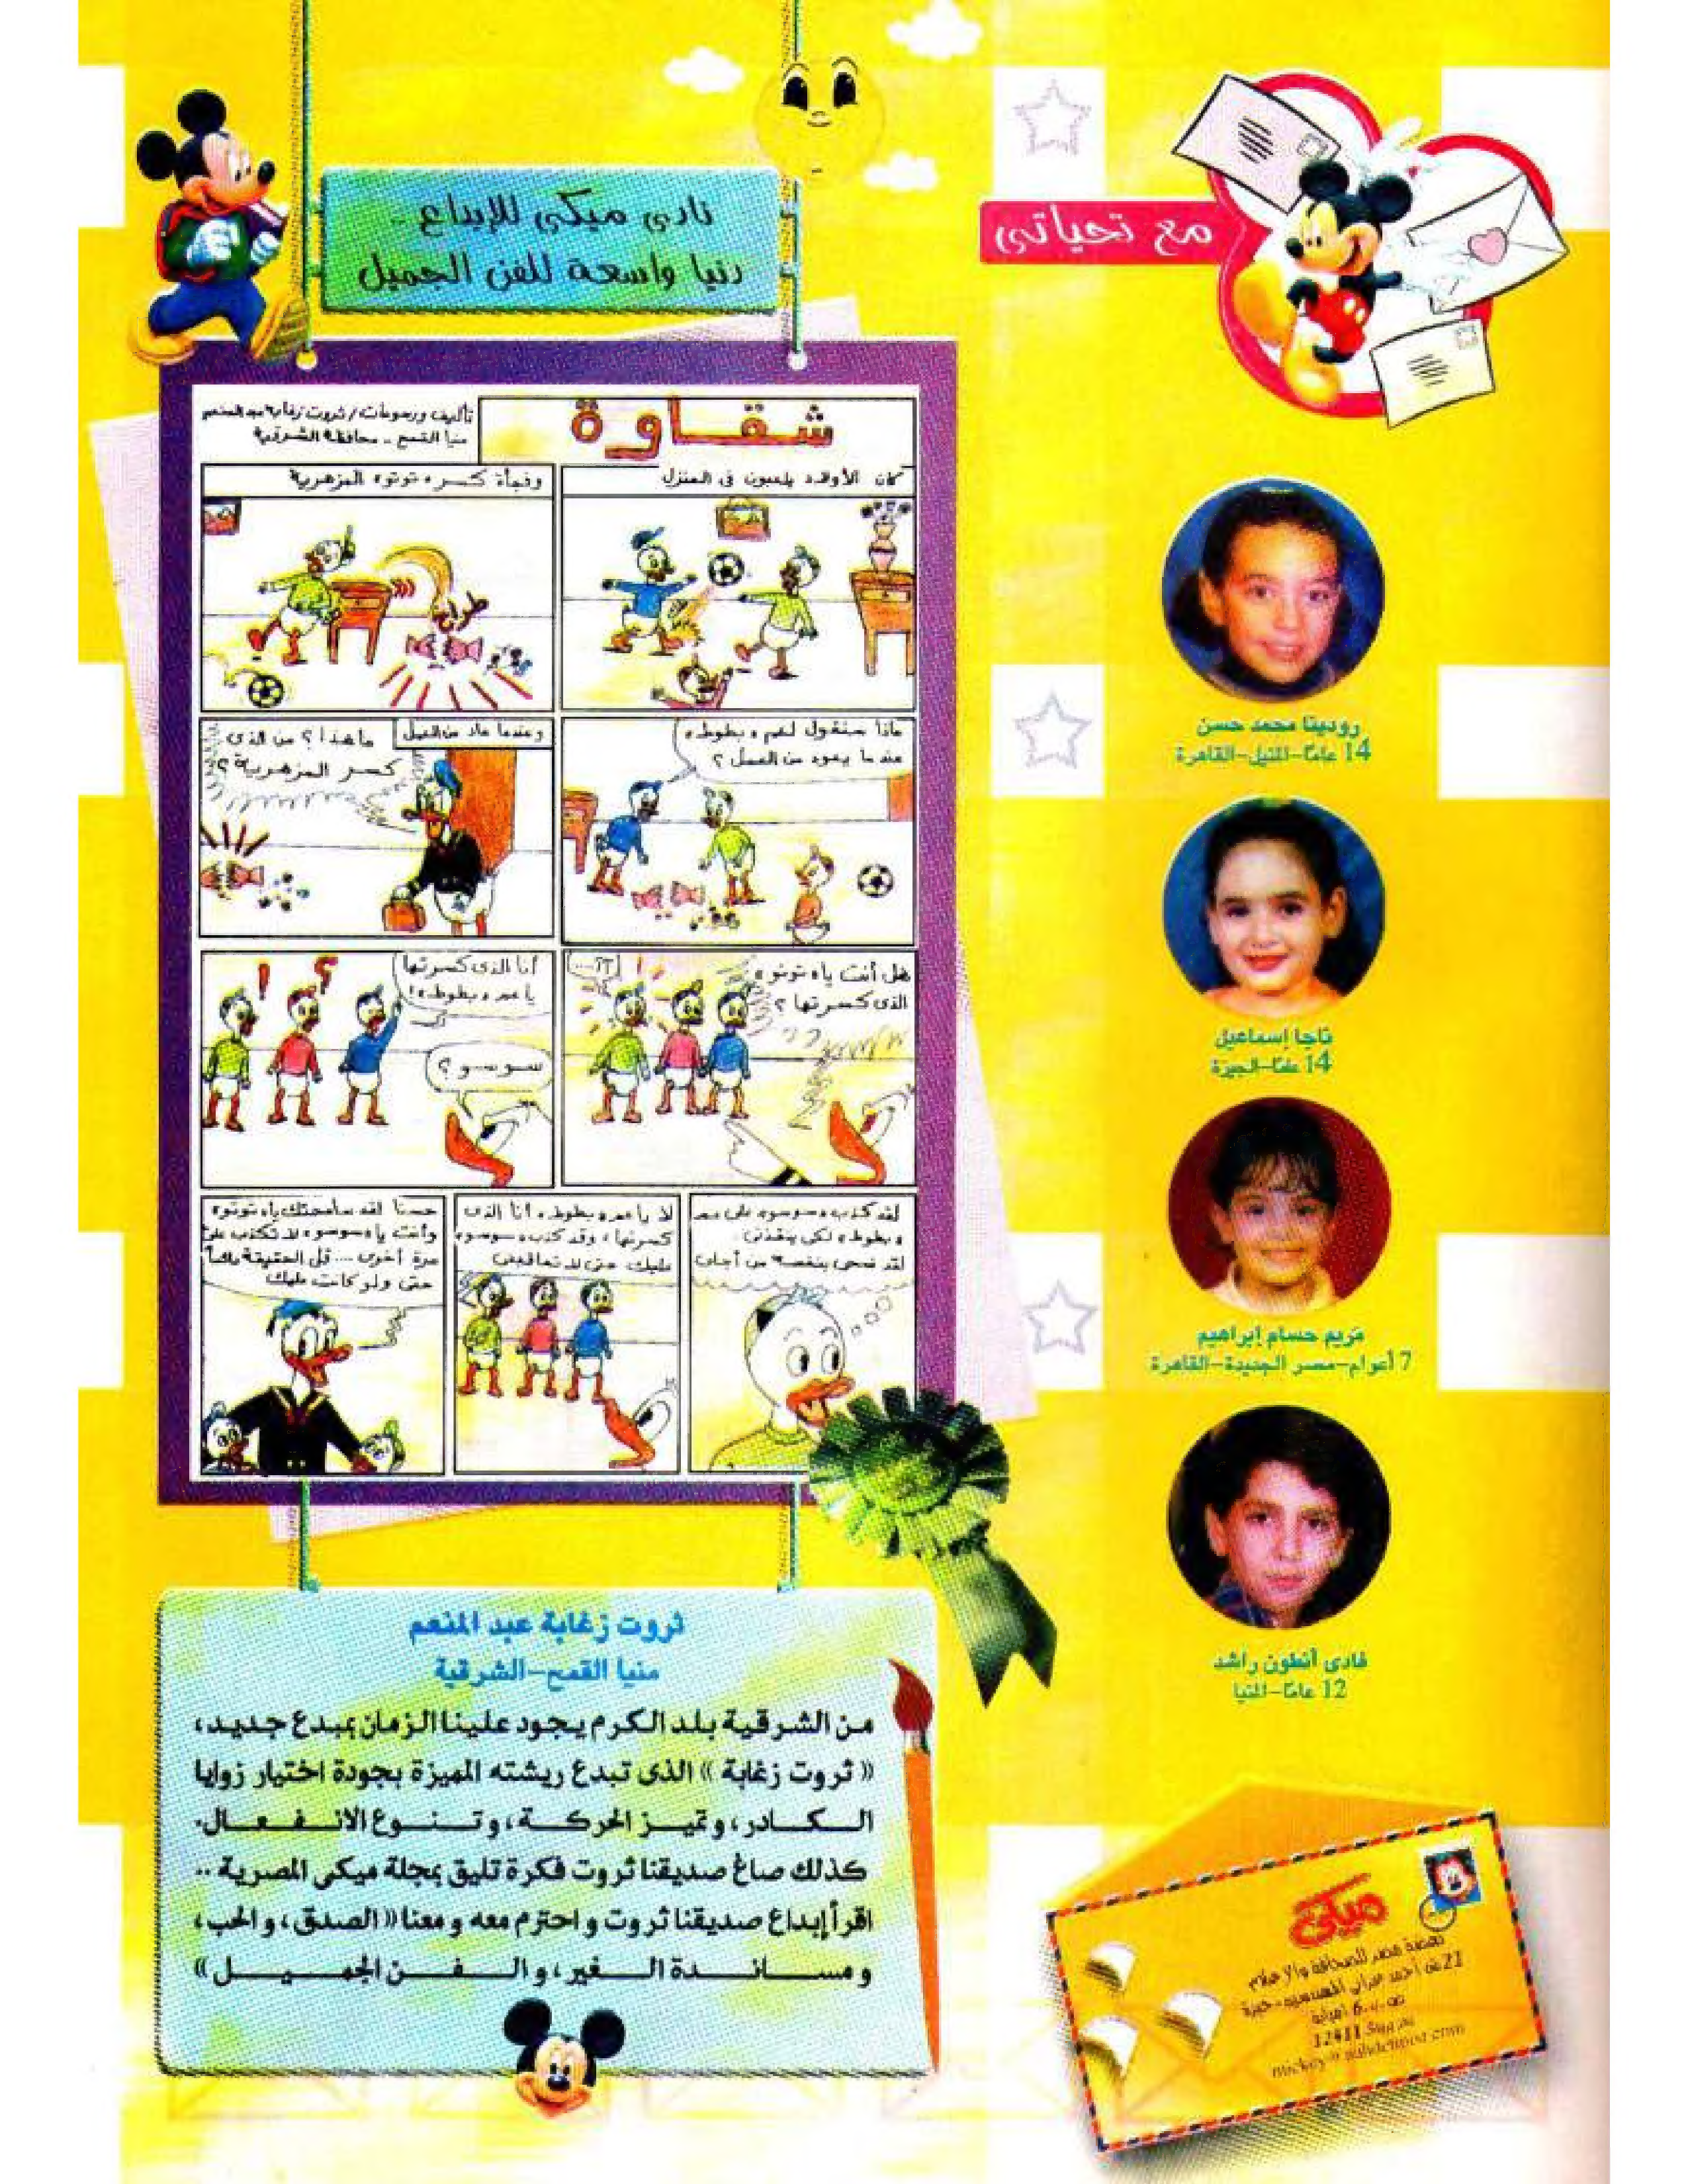 مع تحياتى
نادى ميكى للإبداع ..
دنيا واسعة للفن الجميل
شقاوة
تأليف ورسومات / ثروت زغابة عبد المنعم
منيا القمح .. محافظة الشرقية
كان الأولاد يلعبون فى المنزل
وفجأة كسر «توتو» المزهرية
طراخ
ماذا سنقول لعم «بطوط»
عندما يعود من العمل ؟
وعندما عاد من العمل
ما هذا ؟ من الذى
كسر المزهرية ؟
هل أنت يا «توتو»
الذى كسرتها ؟
...؟!
أنا الذى كسرتها
يا عم «بطوط» !
سوسو ؟
لقد كذب «سوسو» على عم
«بطوط» لكى ينقذنى
لقد ضحى بنفسه من أجلى
لا يا عم «بطوط» أنا الذى
كسرتها ، وقد كذب «سوسو»
عليك حتى لا تعاقبنى
حسنا لقد سامحتك يا «توتو»
وأنت يا «سوسو» لا تكذب على
مرة أخرى .... قل الحقيقة دائماً
حتى ولو كانت عليك
رودينا محمد حسن
14 عامًا-المنيل-القاهرة
ناجا إسماعيل
14 عامًا-الجيزة
مريم حسام إبراهيم
7 أعوام-مصر الجديدة-القاهرة
فادى أنطون راشد
12 عامًا-المنيا
ثروت زغابة عبد المنعم
منيا القمح-الشرقية
من الشرقية بلد الكرم يجود علينا الزمان بمبدع جديد،
«ثروت زغابة» الذى تبدع ريشته المميزة بجودة اختيار زوايا
الكادر، وتميز الحركة، وتنوع الانفعال.
كذلك صاغ صديقنا ثروت فكرة تليق بمجلة ميكى المصرية ..
اقرأ إبداع صديقنا ثروت واحترم معه ومعنا «الصدق، والحب،
ومساندة الغير، والفن الجميل»
ميكى
نهضة مصر للصحافة والإعلام
21 ش أحمد عرابى المهندسين-جيزة
ص.ب 6 إمبابة
12411